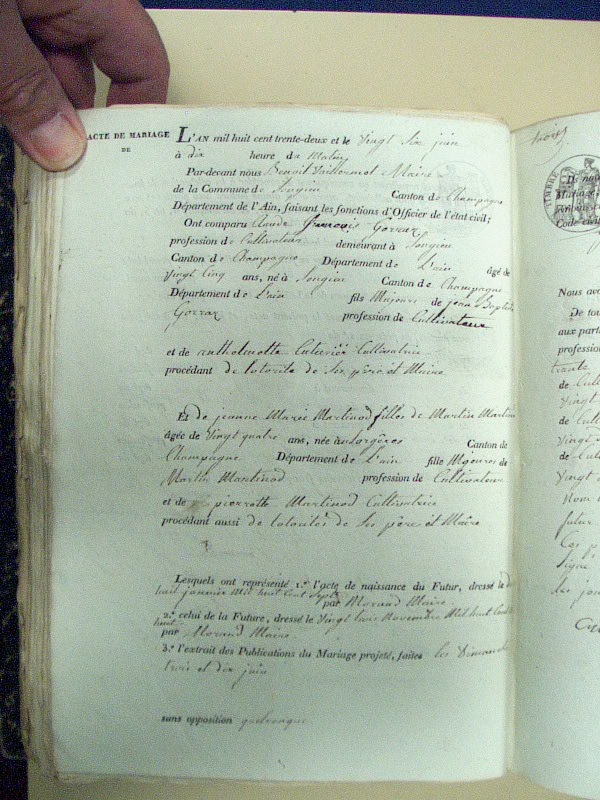 ACTE DE MARIAGE
DE
L'AN mil huit cent trente-deux et le vingt six juin
à dix heure du Matin
Par-devant nous Benoit Vuillermot Maire
de la Commune de Songieu Canton de Champagne
Département de l'Ain, faisant les fonctions d'Officier de l'état civil;
Ont comparu Claude françois Gorraz
profession de Cultivateur demeurant à Songieu
Canton de Champagne Département de L'ain âgé de
vingt Cinq ans, né à Songieu Canton de Champagne
Département de L'ain fils Majeure de jean Baptiste
Gorraz profession de Cultivateur
et de Cultivatrice
procédant de lotorite de Ses père et Maire
Et de jeanne Marie Martinod filles de Martin Martinod
âgée de vingt quatre ans, née à Canton de
Champagne Département de L'ain fille Majeures de
Martin Martinod profession de Cultivateur
et de pierrotte Martinod Cultivatrice
procédant aussi de lotorités de Ses père et Maire
Lesquels ont représenté 1.º l'acte de naissance du Futur, dressé le dix
huit janvier Mil huit Cent Sept
par Morand Maire
2.º celui de la Future, dressé le vingt trois Novembre Mil huit Cent
huit
par Morand Maire
3.º l'extrait des Publications du Mariage projeté, faites les Dimanche
trois et dix juin
sans opposition quelconque
trois
TIMBRE
De
Mariage
Code civil
Nous avo
De tou
aux partie
profession
trante
de Cult
vingt
de Cult
vingt
de Cul
vingt
Nom
futur
Ces
Signe
les jou